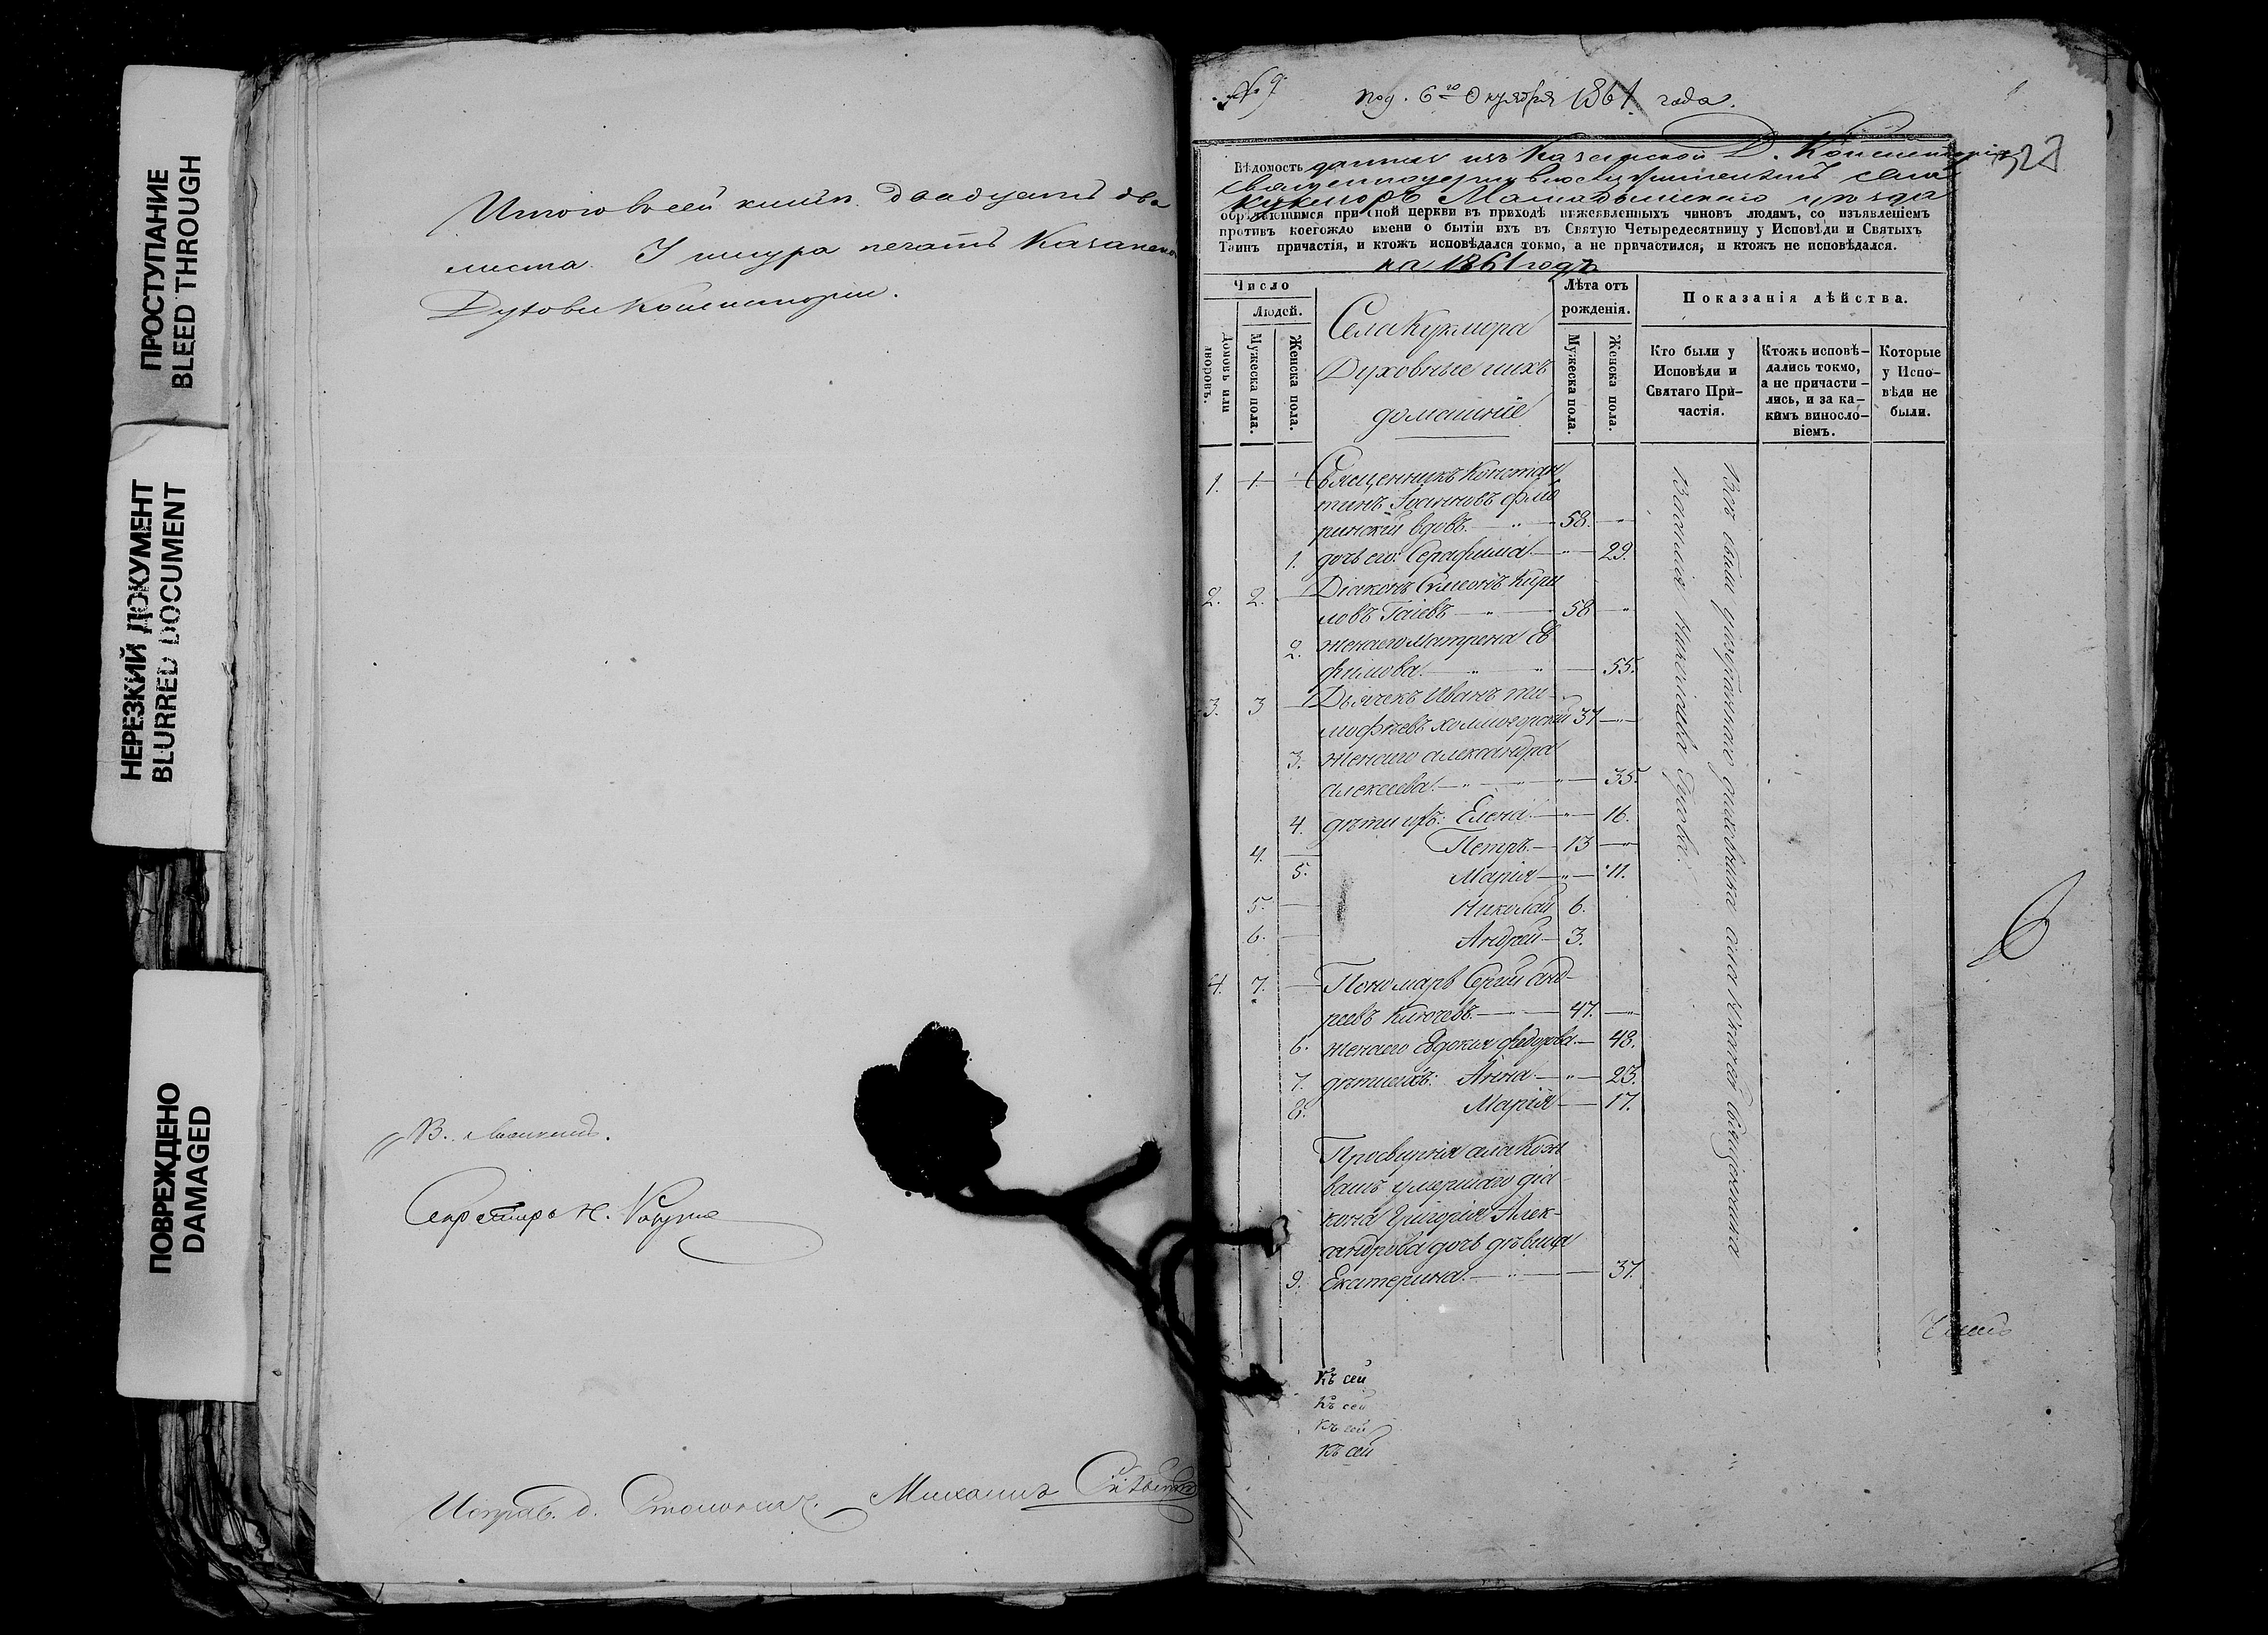 ПРОСТУПАНИЕ
BLEED THROUGH
НЕРЕЗКИЙ ДОКУМЕНТ
BLURRED DOCUMENT
ПОВРЕЖДЕНО
DAMAGED
Итого в сей книге двадцать два
листа. У шнура печать Казанской
Духовн Консистории.
Секретарь Н.
Исправ. д. Столонач. Михаилъ
№ 9
Под. 6го Октября 1861 года.
Вѣдомость данная изъ Казанской Д. Консисторіи
села
Кукморъ Мамадышскаго уѣзда
обрѣтающимся при оной церкви въ приходѣ нижеявленныхъ чиновъ людямъ, со изъявленіемъ
противъ коегождо имени о бытіи ихъ въ Святую Четыредесятницу у Исповѣди и Святыхъ
Таинъ причастія, и ктожъ исповѣдался токмо, а не причастился, и ктожъ не исповѣдался.
на 1861 годъ
Число
Людей.
Домовъ или дворовъ.
Мужеска пола.
Женска пола.
Села Кукмора
Духовные и ихъ
домашніе
Лѣта отъ
рожденія.
Мужеска пола.
Женска пола.
Показанія дѣйства.
Кто были у
Исповѣди и
Святаго При-
частія.
Ктожъ исповѣ-
дались токмо,
а не причасти-
лись, и за ка-
кимъ винословіемъ.
Которые
у Испо-
вѣди не
были.
1. 1. Священникъ Констан
тинъ Іоанновъ Фло
ринскій вдовъ 58.
1. дочь его: Серафима 29.
2. 2. Діаконъ Симеонъ Кири
ловъ Гаіевъ 58
2. жена его Матрена Ев
фимова 55.
3. 3 Дьячекъ Иванъ Ти-
мофѣевъ Холмогорскій 37
3. жена его Александра
Алексеева 35.
4. дѣти ихъ: Елена 16.
4. Петръ 13
5. Марія 11.
5. Николай 6.
6. Андрей 3.
4. 7. Пономарь Сергій Анд-
реевъ Ключевъ 47.
6. жена его Евдокія Федорова 48.
7. дѣти ихъ: Анна 23.
8. Марія 17.
Просвирня села
умершаго діа-
кона Григорія Алек-
сандрова дочь дѣвица
9. Екатерина 37.
Всѣ были у духовника села Священника
Василія
6
Къ сей
Къ сей
Къ сей
Къ сей